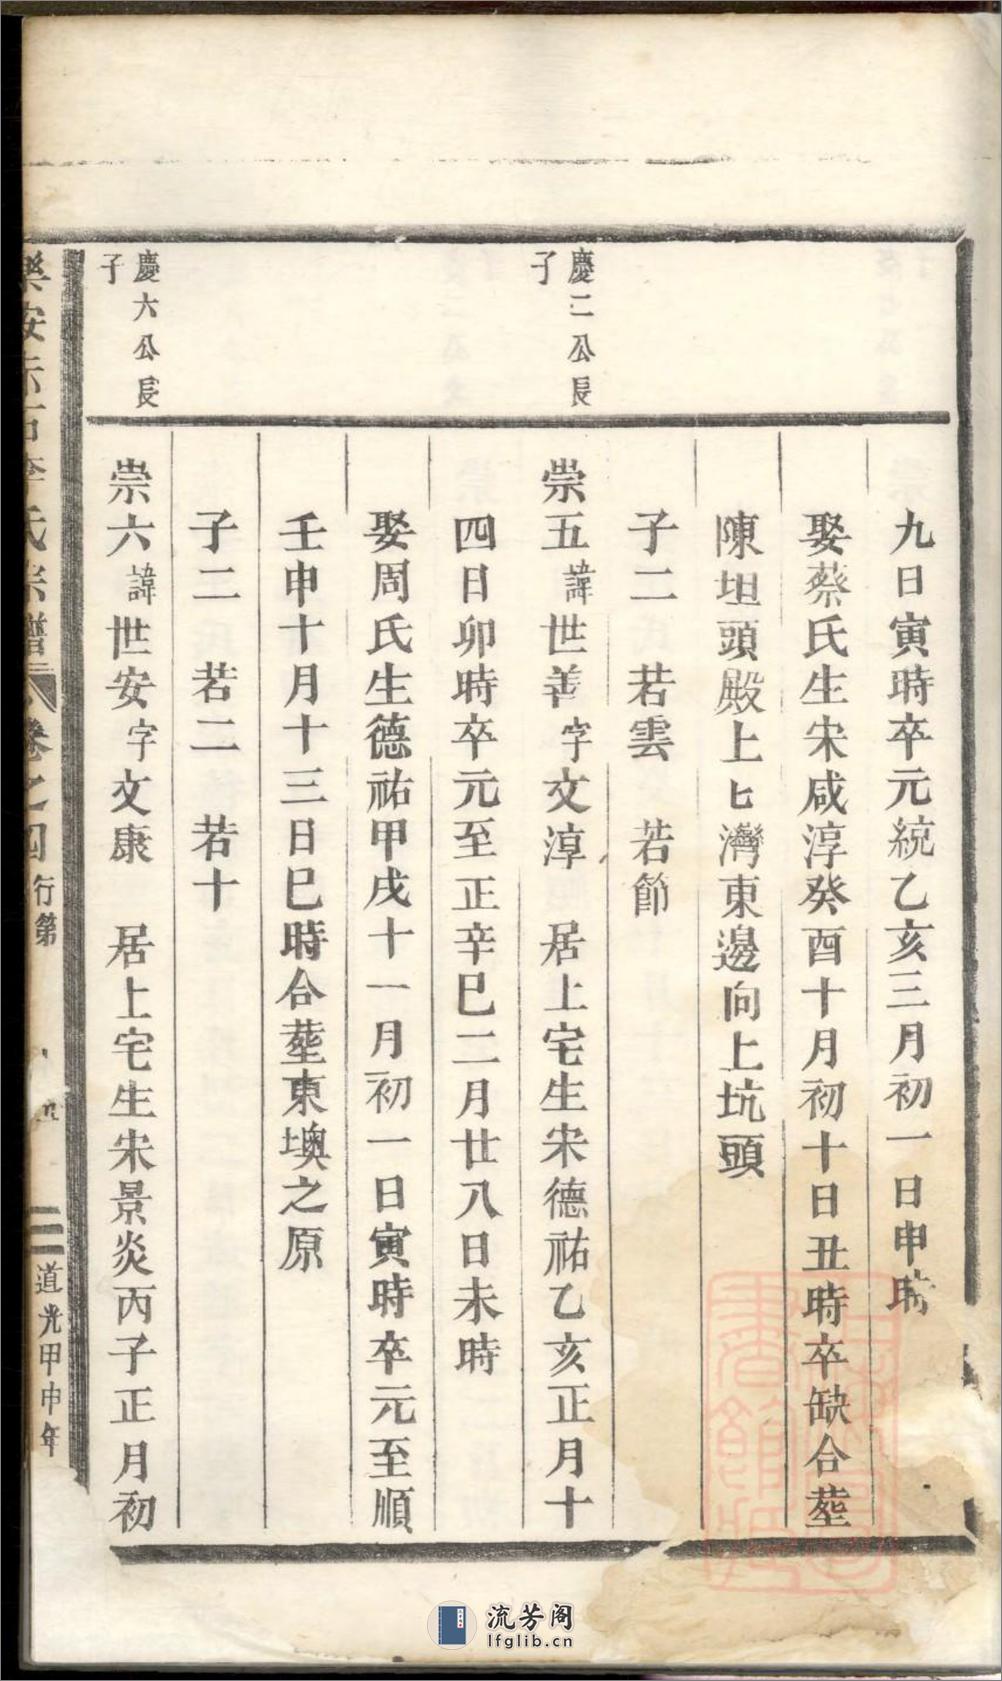 九日寅時卒元統乙亥三月初一日申時
娶蔡氏生宋咸淳癸酉十月初十日丑時卒缺合塟
陳坦頭殿上匕灣東邊向上坑頭
子二 若雲 若節
慶二公長
子
崇五諱世善字文淳 居上宅生宋德祐乙亥正月十
四日卯時卒元至正辛巳二月廿八日未時
娶周氏生德祐甲戌十一月初一日寅時卒元至順
壬申十月十三日巳時合塟東墺之原
子二 若二 若十
慶六公長
子
崇六諱世安字文康 居上宅生宋景炎丙子正月初
樂安赤石李氏宗譜 卷之四 行第 三 道光甲申年
流芳阁
lfglib.cn